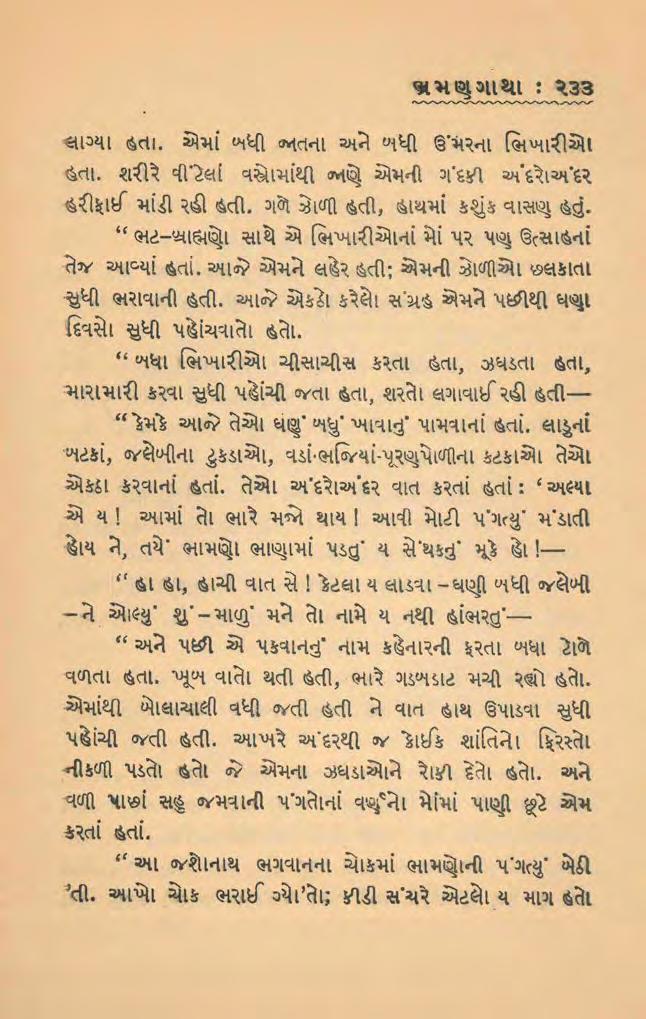 ભ્રમણગાથા : ૨૩૩
લાગ્યા હતા. એમાં બધી જાતના અને બધી ઉંમરના ભિખારીઓ
હતા. શરીરે વીંટેલાં વસ્ત્રોમાંથી જાણે એમની ગંદકી અંદરોઅંદર
હરીફાઈ માંડી રહી હતી. ગળે ઝોળી હતી, હાથમાં કશુંક વાસણ હતું.
“ ભટ-બ્રાહ્મણો સાથે એ ભિખારીઓનાં મોં પર પણ ઉત્સાહનાં
તેજ આવ્યાં હતાં. આજે એમને લહેર હતી; એમની ઝોળીઓ છલકાતા
સુધી ભરાવાની હતી. આજે એકઠો કરેલો સંગ્રહ એમને પછીથી ઘણા
દિવસો સુધી પહોંચવાતો હતો.
“ બધા ભિખારીઓ ચીસાચીસ કરતા હતા, ઝઘડતા હતા,
મારામારી કરવા સુધી પહોંચી જતા હતા, શરતો લગાવાઈ રહી હતી—
“ કેમકે આજે તેઓ ઘણું બધું ખાવાનું પામવાનાં હતાં. લાડુનાં
બટકાં, જલેબીના ટુકડાઓ, વડાં-ભજિયાં-પૂરણપોળીના કટકાઓ તેઓ
એકઠા કરવાનાં હતાં. તેઓ અંદરોઅંદર વાત કરતાં હતાં : ‘ અલ્યા
એ ય ! આમાં તો ભારે મજો થાય ! આવી મોટી પંગત્યું મંડાતી
હોય ને, તયેં ભામણો ભાણામાં પડતું ય સેંથકનું મૂકે હો !—
“ હા હા, હાચી વાત સે ! કેટલા ય લાડવા – ઘણી બધી જલેબી
– ને ઓલ્યું શું – માળું મને તો નામે ય નથી હાંભરતું—
“ અને પછી એ પકવાનનું નામ કહેનારની ફરતા બધા ટોળે
વળતા હતા. ખૂબ વાતો થતી હતી, ભારે ગડબડાટ મચી રહ્યો હતો.
એમાંથી બોલાચાલી વધી જતી હતી ને વાત હાથ ઉપાડવા સુધી
પહોંચી જતી હતી. આખરે અંદરથી જ કોઈક શાંતિનો ફિરસ્તો
નીકળી પડતો હતો જે એમના ઝઘડાઓને રોકી દેતો હતો. અને
વળી પાછાં સહુ જમવાની પંગતોનાં વર્ણનો મોંમાં પાણી છૂટે એમ
કરતાં હતાં.
“ આ જશોનાથ ભગવાનના ચોકમાં ભામણોની પંગત્યું બેઠી
’તી. આખો ચોક ભરાઈ ગ્યો’તો; કીડી સંચરે એટલો ય માગ હતો